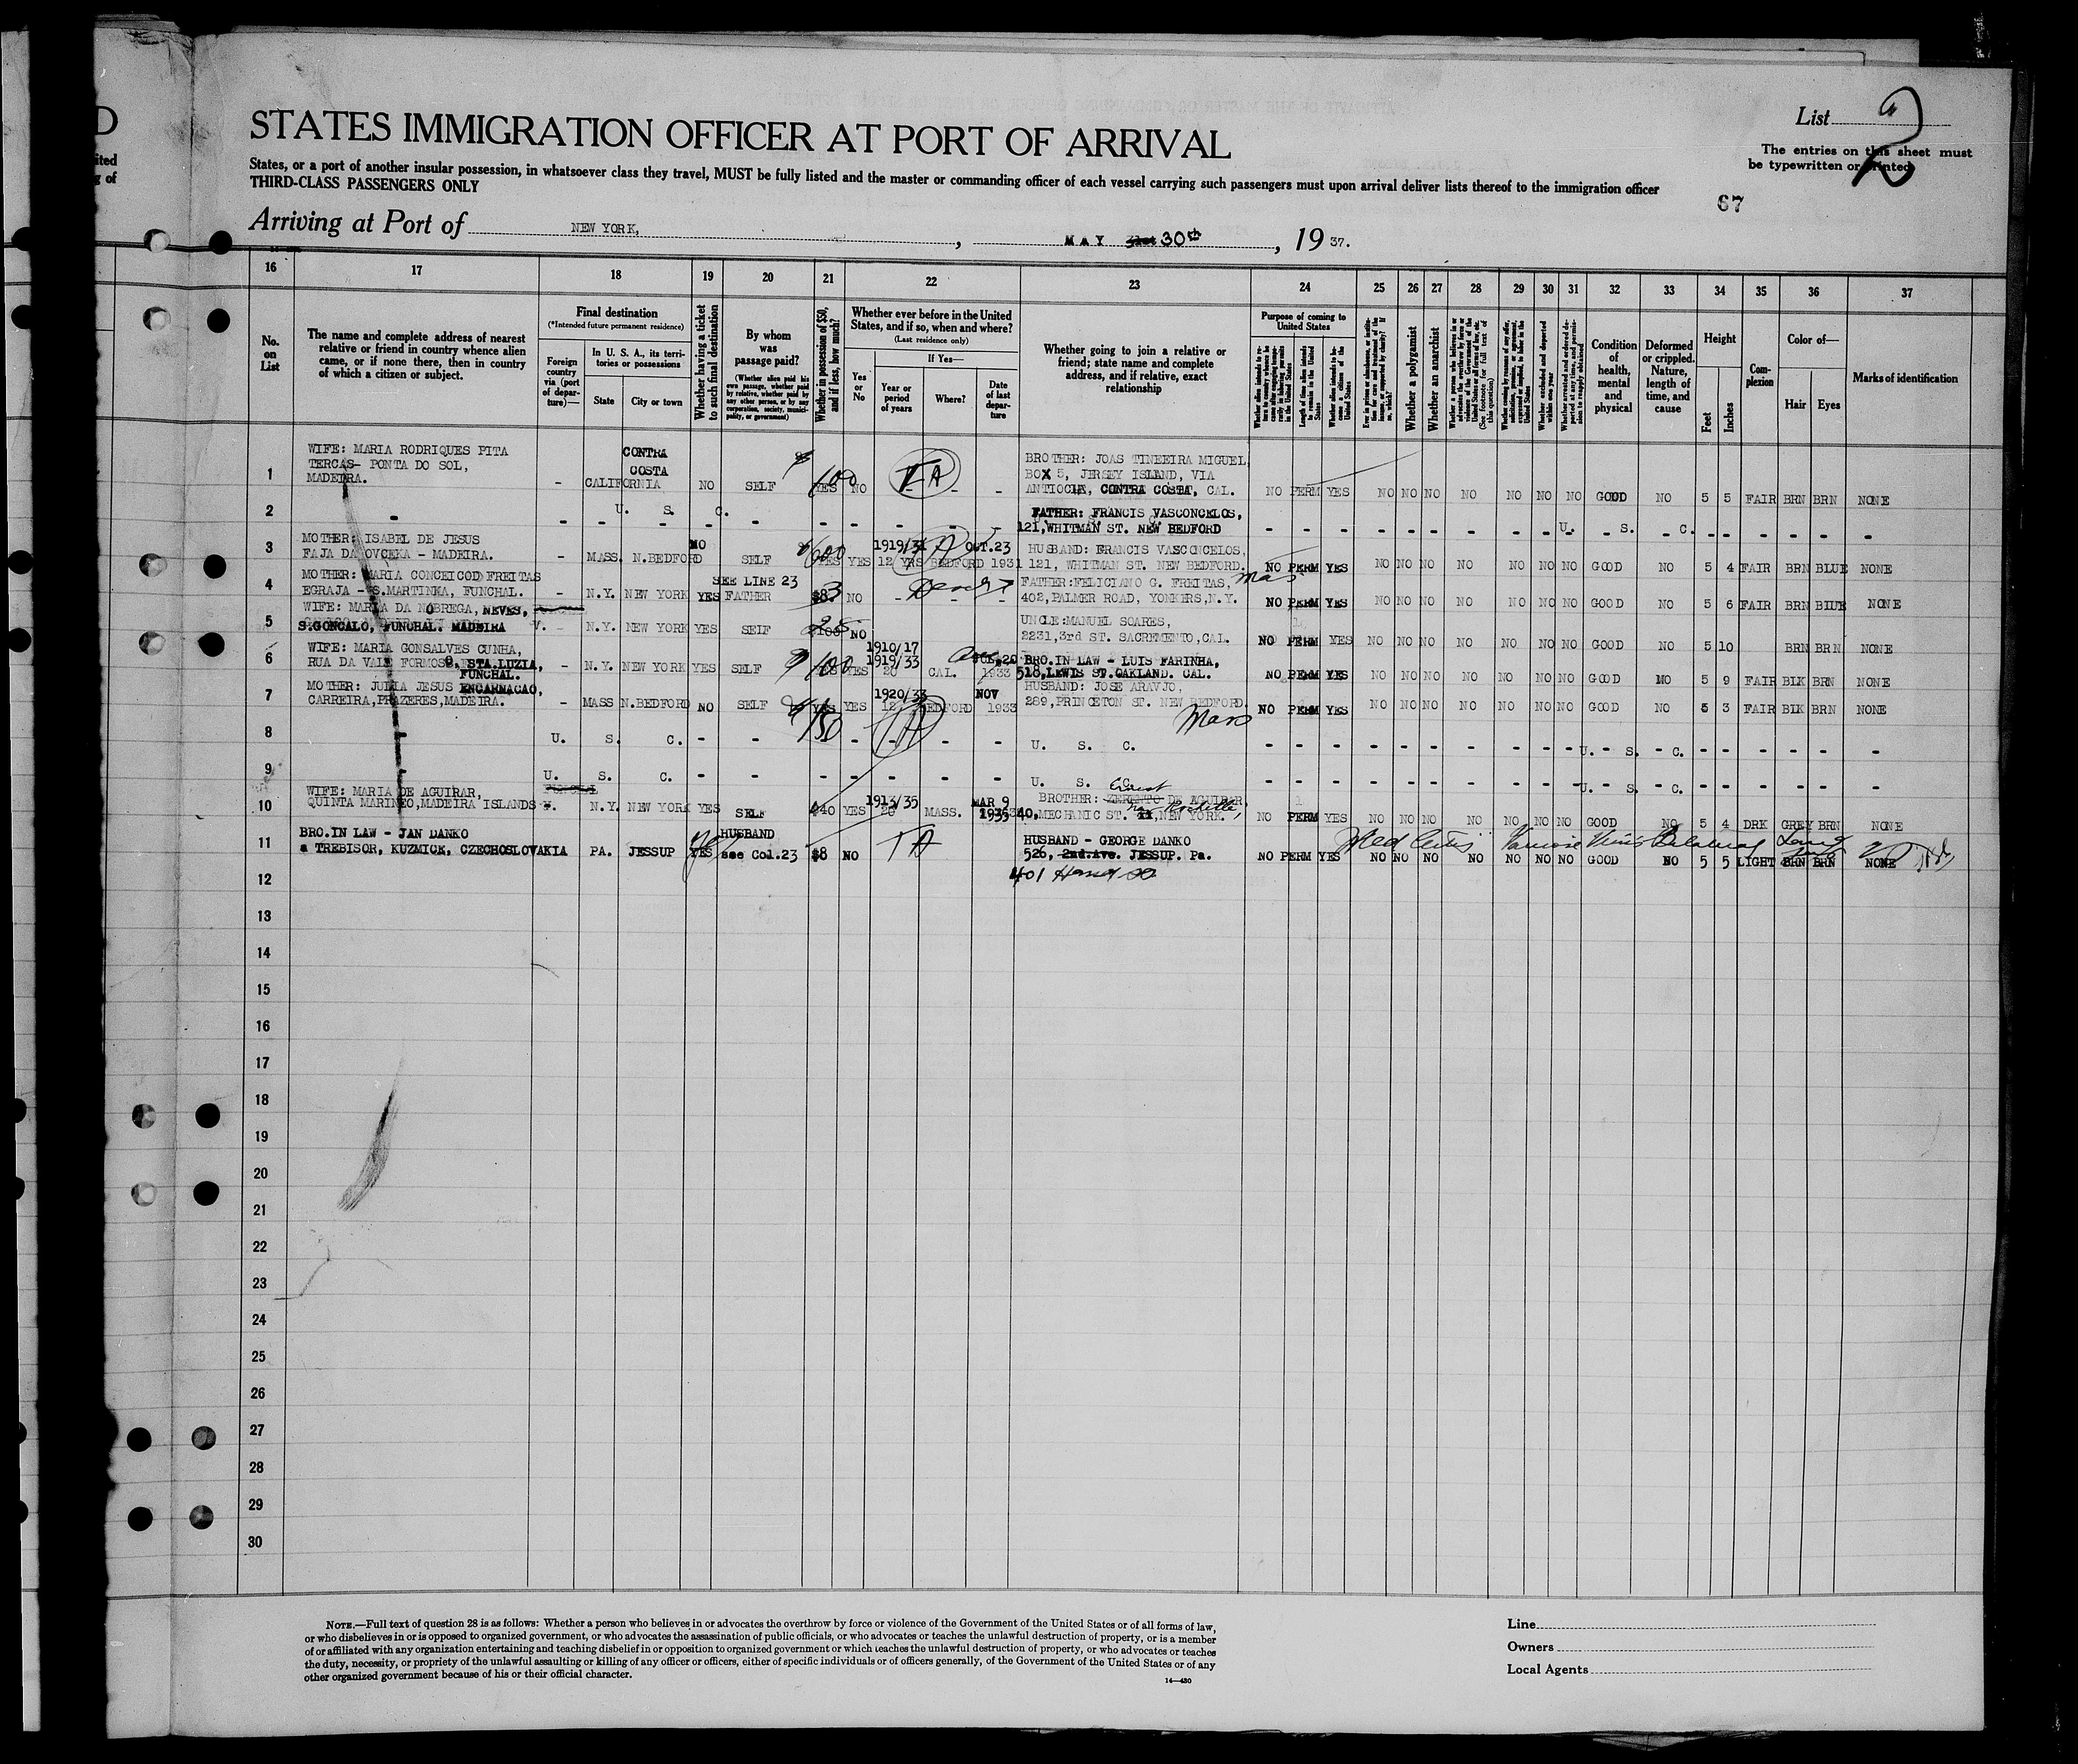 D
ited
g of
List
2
STATES IMMIGRATION OFFICER AT PORT OF ARRIVAL
The entries on this sheet must
be typewritten or printed
States, or a port of another insular possession, in whatsoever class they travel, MUST be fully listed and the master or commanding officer of each vessel carrying such passengers must upon arrival deliver lists thereof to the immigration officer
THIRD-CLASS PASSENGERS ONLY
67
Arriving at Port of NEW YORK, , MAY 31st 30th , 19 37.
16 17 18 19 20 21 22 23 24 25 26 27 28 29 30 31 32 33 34 35 36 37
No. on List
The name and complete address of nearest relative or friend in country whence alien came, or if none there, then in country of which a citizen or subject.
Final destination
(*Intended future permanent residence)
Foreign country via (port of departure)—
In U. S. A., its territories or possessions
State
City or town
Whether having a ticket to such final destination
By whom was passage paid?
(Whether alien paid his own passage, whether paid by relative, whether paid by any other person, or by any corporation, society, municipality, or government)
Whether in possession of $50, and if less, how much?
Whether ever before in the United States, and if so, when and where?
(Last residence only)
Yes or No
If Yes—
Year or period of years
Where?
Date of last departure
Whether going to join a relative or friend; state name and complete address, and if relative, exact relationship
Purpose of coming to United States
Whether a polygamist
Whether an anarchist
Condition of health, mental and physical
Deformed or crippled. Nature, length of time, and cause
Height
Feet
Inches
Complexion
Color of—
Hair
Eyes
Marks of identification
1 WIFE: MARIA RODRIQUES PITA
TERCAS- PONTA DO SOL,
MADEIRA.
- CALIFORNIA CONTRA COSTA NO SELF YES 100 NO - - -
BROTHER: JOAS TINEEIRA MIGUEL,
BOX 5, JERSEY ISLAND, VIA
ANTIOCIA, CONTRA COSTA, CAL.
NO PERM YES NO NO NO NO NO NO NO GOOD NO 5 5 FAIR BRN BRN NONE
2 - - - U. S. C. - - - - - - -
FATHER: FRANCIS VASCONCELOS,
121, WHITMAN ST. NEW BEDFORD
- - - - - - - - - U. S. C. - - - - - -
3 MOTHER: ISABEL DE JESUS
FAJA DA OVCEKA - MADEIRA.
- MASS. N.BEDFORD NO SELF YES 600 YES 1919/31 12 YRS BEDFORD OCT.23 1931
HUSBAND: FRANCIS VASCONCELOS,
121, WHITMAN ST. NEW BEDFORD. Mass
NO PERM YES NO NO NO NO NO NO NO GOOD NO 5 4 FAIR BRN BLUE NONE
4 MOTHER: MARIA CONCEICOD FREITAS
EGRAJA - S.MARTINKA, FUNCHAL.
- N.Y. NEW YORK YES SEE LINE 23 FATHER $83 NO - - -
FATHER:FELICIANO G. FREITAS,
402,PALMER ROAD, YONKERS,N.Y.
NO PERM YES NO NO NO NO NO NO NO GOOD NO 5 6 FAIR BRN BLUE NONE
5 WIFE: MARIA DA NOBREGA, NEVES,
S.GONCALO, FUNCHAL. MADEIRA
V. - N.Y. NEW YORK YES SELF $100 25 NO
UNCLE:MANUEL SOARES,
2231,3rd ST. SACREMENTO,CAL.
NO PERM YES NO NO NO NO NO NO NO GOOD NO 5 10 BRN BRN NONE
6 WIFE: MARIA GONSALVES CUNHA,
RUA DA VALE FORMOSO, STA.LUZIA,
FUNCHAL.
- N.Y. NEW YORK YES SELF 100 YES 1910/17 1919/33 20 CAL. 1933
BRO.IN LAW - LUIS FARINHA,
518,LEWIS ST.OAKLAND. CAL.
NO PERM YES NO NO NO NO NO NO NO GOOD NO 5 9 FAIR BLK BRN NONE
7 MOTHER: JULIA JESUS ENCARNACAO,
CARREIRA,PRAZERES,MADEIRA.
- MASS N.BEDFORD NO SELF YES 150 YES 1920/33 12 BEDFORD NOV 1933
HUSBAND: JOSE ARAVJO,
289,PRINCETON ST. NEW BEDFORD. Mass
NO PERM YES NO NO NO NO NO NO NO GOOD NO 5 3 FAIR BLK BRN NONE
8 U. S. C. - - - - - - - U. S. C. - - - - - - - - - - U. - S. - C. - - - - - -
9 U. S. C. - - - - - - - U. S. C. - - - - - - - - - - U. - S. - C. - - - - - -
10 WIFE: MARIA DE AGUIRAR,
QUINTA MARINEO,MADEIRA ISLANDS
N.Y. NEW YORK YES SELF $40 YES 1913/35 20 MASS. MAR 9 1935
BROTHER: DE AGUIRAR
40,MECHANIC ST. New Rochelle, NEW YORK.
NO PERM YES NO NO NO NO NO NO NO GOOD NO 5 4 DRK GREY BRN NONE
11 BRO.IN LAW - JAN DANKO
a TREBISOR, KUZMICK, CZECHOSLOVAKIA
PA. JESSUP YES HUSBAND see Col.23 $8 NO TA
HUSBAND - GEORGE DANKO
526, 2nd.Ave. JESSUP. Pa.
401
NO PERM YES NO NO NO NO NO NO NO GOOD NO 5 5 LIGHT BRN BRN NONE
12
13
14
15
16
17
18
19
20
21
22
23
24
25
26
27
28
29
30
NOTE.—Full text of question 28 is as follows: Whether a person who believes in or advocates the overthrow by force or violence of the Government of the United States or of all forms of law,
or who disbelieves in or is opposed to organized government, or who advocates the assassination of public officials, or who advocates or teaches the unlawful destruction of property, or is a member
of or affiliated with any organization entertaining and teaching disbelief in or opposition to organized government or which teaches the unlawful destruction of property, or who advocates or teaches
the duty, necessity, or propriety of the unlawful assaulting or killing of any officer or officers, either of specific individuals or of officers generally, of the Government of the United States or of any
other organized government because of his or their official character.
14—480
Line
Owners
Local Agents